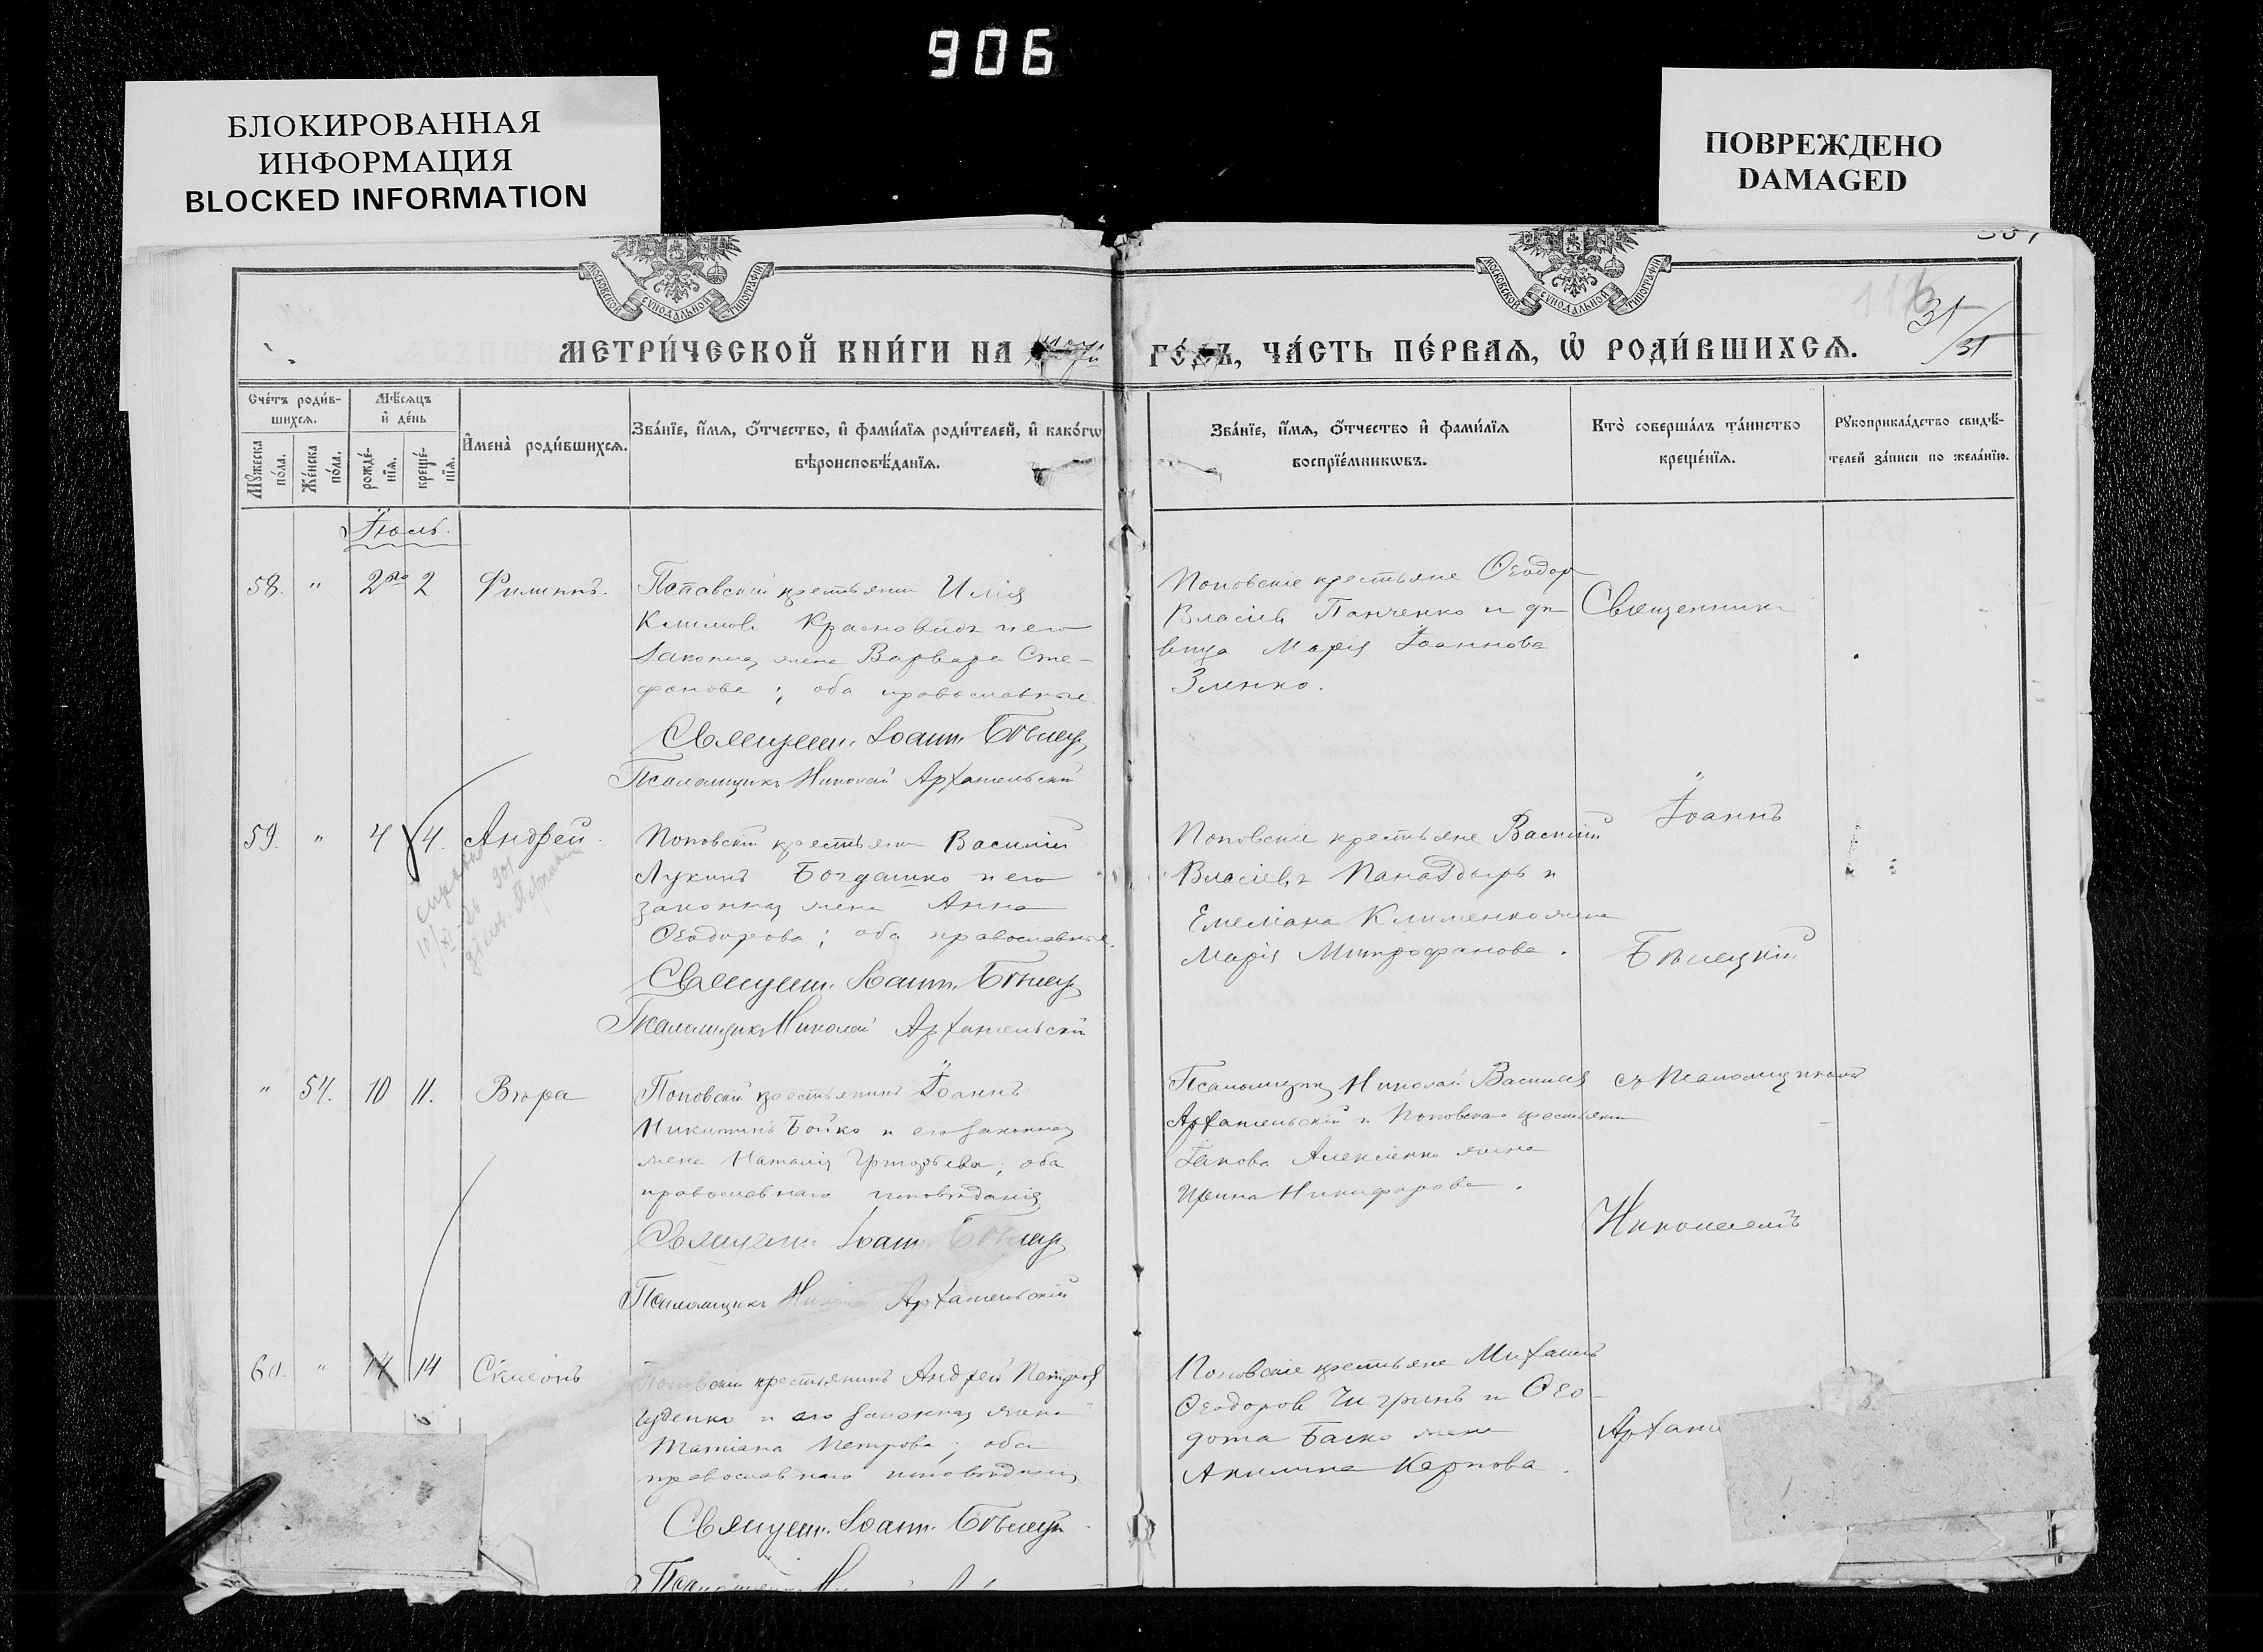 906
БЛОКИРОВАННАЯ
ИНФОРМАЦИЯ
BLOCKED INFORMATION
ПОВРЕЖДЕНО
DAMAGED
МОСКОВСКОЙ СУНОДАЛЬНОЙ ТИПОГРАФІИ
МОСКОВСКОЙ СУНОДАЛЬНОЙ ТИПОГРАФІИ
31
31
МЕТРИ́ЧЕСКОЙ КНИ́ГИ НА
ГО́ДЪ, ЧА́СТЬ ПЕ́РВАѦ, Ѡ҆ РОДИ́ВШИХСѦ.
Сче́тъ роди́в-
шихсѧ.
Мꙋжеска по́ла.
Же́нска по́ла.
Мѣ́сѧцъ
и҆ де́нь
рожде́-
нїѧ.
креще́-
нїѧ.
И҆мена̀ роди́вшихсѧ.
Зва́нїе, и҆́мѧ, ѻ҆́тчество, и҆ фами́лїѧ роди́телей, и҆ како́гѡ
вѣроисповѣ́данїѧ.
Зва́нїе, и҆́мѧ, ѻ҆́тчество и҆ фами́лїѧ
воспрїе́мникѡвъ.
Кто̀ соверша́лъ та́инство
креще́нїѧ.
Рꙋкоприкла́дство свидѣ́-
телей за́писи по жела́нїю.
Іюль.
58. " 2го 2 Филиппъ.
Поповскій крестьянинъ Илія
Климовъ Красновидъ и его
законная жена Варвара Сте-
фанова; оба православные.
Священн. Іоанн. Бѣлец.
Псаломщикъ Николай Архангельскій
Поповскіе крестьяне Ѳеодоръ
Власіевъ Панченко и дѣ-
вица Марія Іоаннова
Зленко.
Священникъ
59. " 4 4. Андрей.
Поповскій крестьянинъ Василій
Лукинъ Богдашко и его
законная жена Анна
Ѳеодорова; оба православные.
Священн. Іоанн. Бѣлец.
Псаломщикъ Николай Архангельскій
Поповскіе крестьяне Василій
Власіевъ Панадырь и
Емеліана Клименко жена
Марія Митрофанова.
Іоаннъ
Бѣлецкій
" 54. 10 11. Вѣра
Поповскій крестьянинъ Іоаннъ
Никитинъ Бойко и его законная
жена Наталія Григорьева; оба
православнаго исповѣданія
Священн. Іоанн. Бѣлец.
Псаломщикъ Николай Архангельскій
Псаломщикъ Николай Василіевъ
Архангельскій и Поповскаго крестьянина
Іакова Алексіенко жена
Ирина Никифорова.
съ Псаломщикомъ
Николаемъ
60. " 14 14 Сѵмеонъ
Поповскій крестьянинъ Андрей Петровъ
и его законная жена
Татіана Петрова; оба
православнаго исповѣданія
Священн. Іоанн. Бѣлец.
Поповскіе крестьяне Михаилъ
Ѳеодоровъ Чигринъ и Ѳео-
дота Баско жена
Акилина Карпова.
Арханг